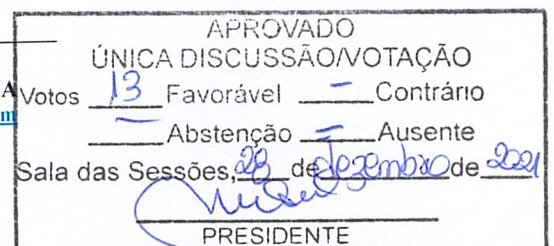 APROVADO
ÚNICA DISCUSSÃO/VOTAÇÃO
A
m
Votos 13 Favorável – Contrário
– Abstenção – Ausente
Sala das Sessões, 28 de dezembro de 2021
PRESIDENTE